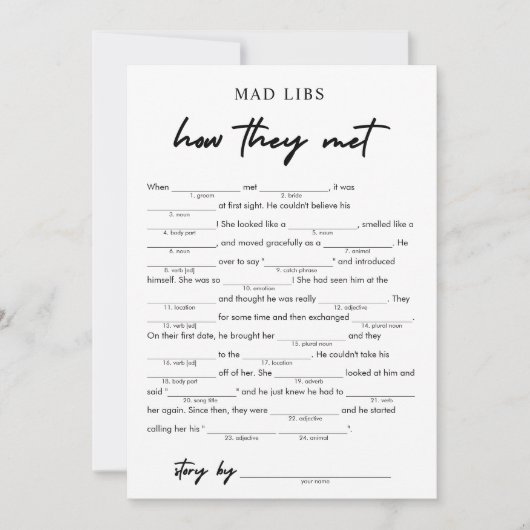 MAD LIBS
how they met
When ____________ met ____________, it was
1. groom 2. bride
____________ at first sight. He couldn't believe his
3. noun
____________! She looked like a ____________, smelled like a
4. body part 5. noun
____________, and moved gracefully as a ____________. He
6. noun 7. animal
____________ over to say "____________" and introduced
8. verb [ed] 9. catch phrase
himself. She was so ____________! She had seen him at the
10. emotion
____________ and thought he was really ____________. They
11. location 12. adjective
____________ for some time and then exchanged ____________.
13. verb [ed] 14. plural noun
On their first date, he brought her ____________ and they
15. plural noun
____________ to the ____________. He couldn't take his
16. verb [ed] 17. location
____________ off of her. She ____________ looked at him and
18. body part 19. adverb
said "____________" and he just knew he had to ____________
20. song title 21. verb
her again. Since then, they were ____________ and he started
22. adjective
calling her his "____________ ____________".
23. adjective 24. animal
story by ____________
your name